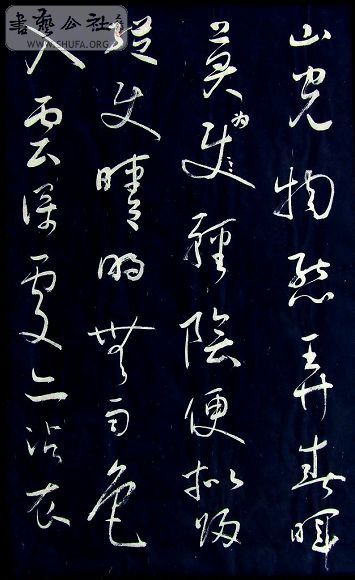 書藝公社
WWW.SHUFA.ORG
山光物態弄春暉
莫使為輕陰便拟歸
縱使晴明無雨色
入雲深處亦沾衣